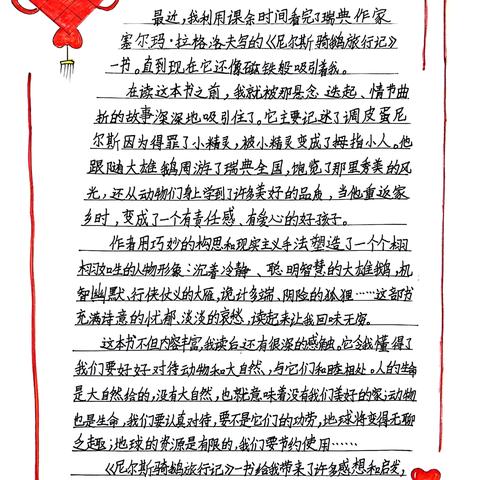 最近，我利用课余时间看完了瑞典作家
塞尔玛·拉格洛夫写的《尼尔斯骑鹅旅行记》
一书。直到现在它还像磁铁般吸引着我。
在读这本书之前，我就被那悬念迭起、情节曲
折的故事深深地吸引住了。它主要记述了调皮蛋尼
尔斯因为得罪了小精灵，被小精灵变成了拇指小人。他
跟随大雄鹅周游了瑞典全国，饱览了那里秀美的风
光，还从动物们身上学到了许多美好的品质，当他重返家
乡时，变成了一个有责任感、有爱心的好孩子。
作者用巧妙的构思和现实主义手法塑造了一个个栩
栩如生的人物形象：沉着冷静、聪明智慧的大雄鹅，机
智幽默、行侠仗义的大雁，诡计多端、阴险的狐狸……这部书
充满诗意的忧郁、淡淡的哀愁，读起来让我回味无穷。
这本书不但内容丰富，我读后还有很深的感触。它令我懂得了
我们要好好对待动物和大自然，与它们和睦相处。人的生命
是大自然给的，没有大自然，也就意味着没有我们美好的家；动物
也是生命，我们要认真对待，要不是它们的功劳，地球将变得无聊
乏趣；地球的资源是有限的，我们要节约使用……
《尼尔斯骑鹅旅行记》一书给我带来了许多感想和启发，